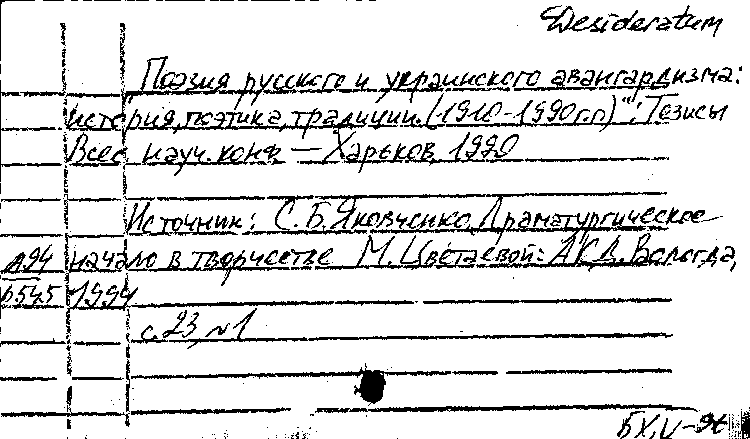 Desideratum
Поэзия русского и украинского авангардизма:
история, поэтика, традиции. (1910-1990гг.)": Тезисы
Всес. науч. конф. — Харьков, 1990
Источник: С.Б.Яковченко. Драматургическое
А94 начало в творчестве М. Цветаевой: АКД. Вологда,
1994
с.23, №1
БХ, V-96